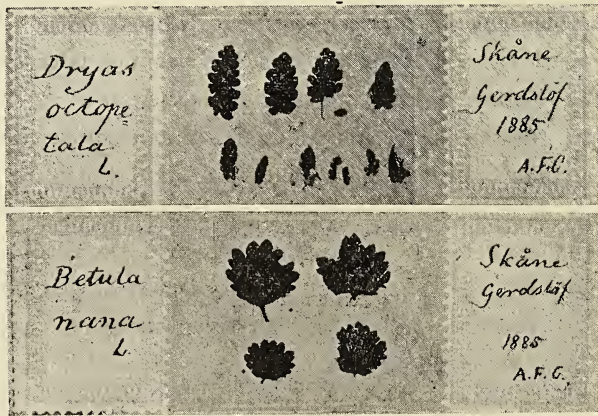 Dryas
octope
tala
L.
Skåne
Gerdslöf
1885
A.F.C.
Betula
nana
L
Skåne
Gerdslöf
1885
A.F.C.